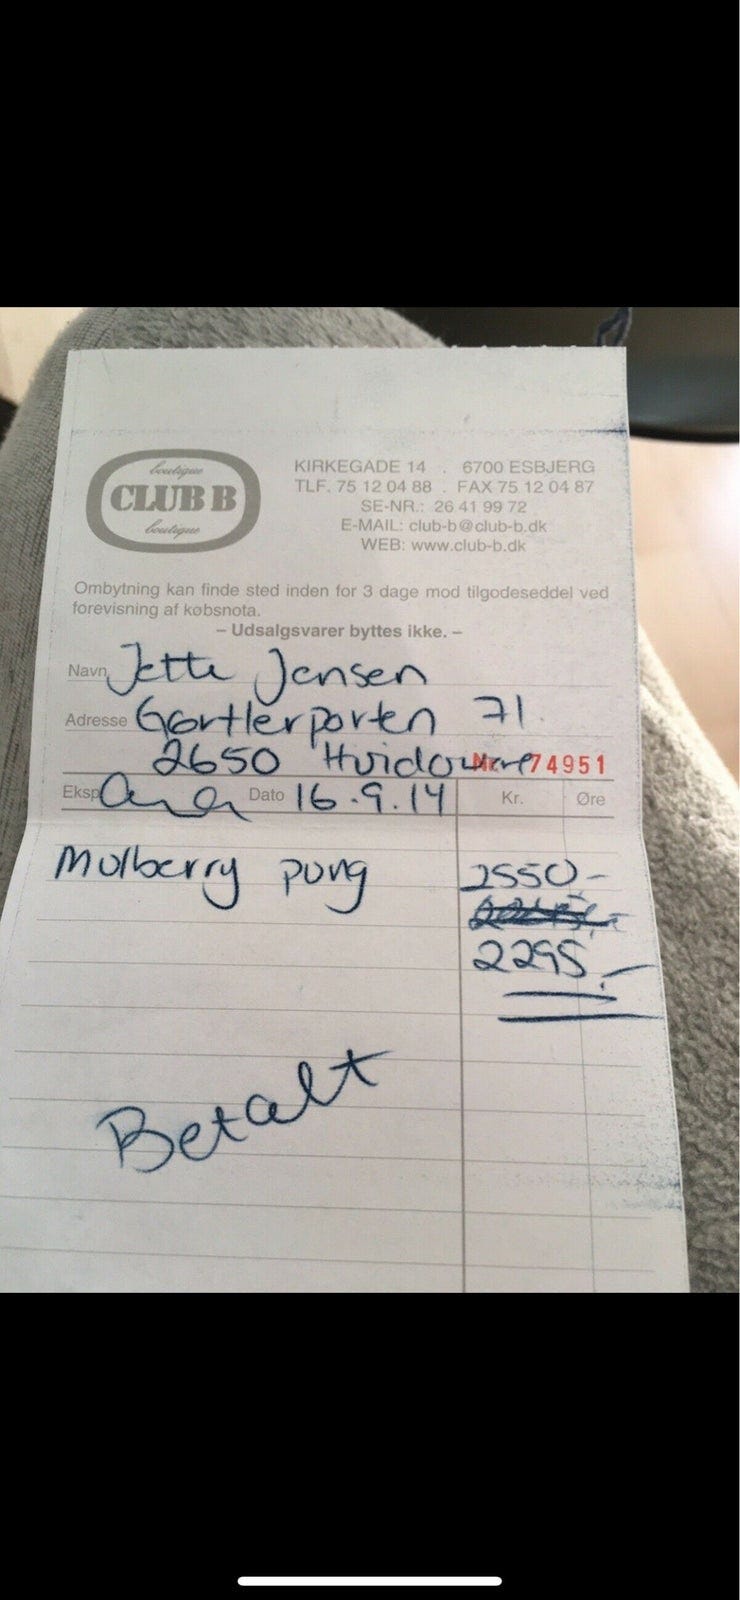 boutique
CLUB B
boutique
KIRKEGADE 14 . 6700 ESBJERG
TLF. 75 12 04 88 . FAX 75 12 04 87
SE-NR.: 26 41 99 72
E-MAIL: club-b@club-b.dk
WEB: www.club-b.dk
Ombytning kan finde sted inden for 3 dage mod tilgodeseddel ved
forevisning af købsnota.
– Udsalgsvarer byttes ikke. –
Navn Jette Jensen
Adresse Gørtlerporten 71.
2650 Hvidovre Nr. 74951
Eksp. Dato 16.9.14 Kr. Øre
Mulberry pung 2550,-
2295,-
Betalt